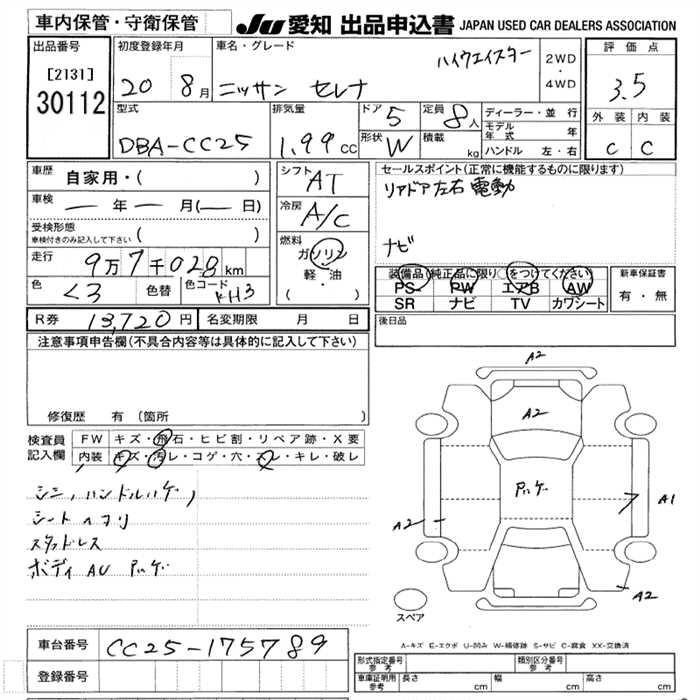 車内保管・守衛保管
JU 愛知 出品申込書 JAPAN USED CAR DEALERS ASSOCIATION
出品番号
[2131]
30112
初度登録年月
20 8月
車名・グレード
ニッサン セレナ
ハイウェイスター
2WD
・
4WD
評価点
3.5
外装 内装
C C
型式
DBA-CC25
排気量
1.99cc
ドア 5
形状 W
定員 8人
積載 kg
ディーラー・並行
モデル年式 年
ハンドル 左・右
車歴
自家用・( )
車検
― 年 ― 月(― 日)
受検形態
車検付きのみ記入して下さい ( )
走行
9万7千028km
色
クロ 色替 色コード KH3
シフト AT
冷房 A/C
燃料
ガソリン
軽・油
( )
セールスポイント(正常に機能するものに限ります)
リアドア左右電動
ナビ
装備品(純正品に限り○をつけてください)
PS PW エアB AW
SR ナビ TV カワシート
新車保証書
有・無
R券 13,720円 名変期限 月 日
後日品
注意事項申告欄(不具合内容等は具体的に記入して下さい)
修復歴 有(箇所 )
検査員
記入欄
FW キズ・飛石・ヒビ割・リペア跡・X要
内装 キズ・汚レ・コゲ・穴・スレ・キレ・破レ
ハンドルハゲ
シートヘコリ
スタッドレス
ボディ AU
A2
A2
A1
A2
A2
スペア
A-キズ E-エクボ U-凹み W-補修跡 S-サビ C-腐食 XX-交換済
車台番号
CC25-175789
登録番号
形式指定番号
参考
類別区分番号
車庫証明用
参考
長さ cm 幅 cm 高さ cm